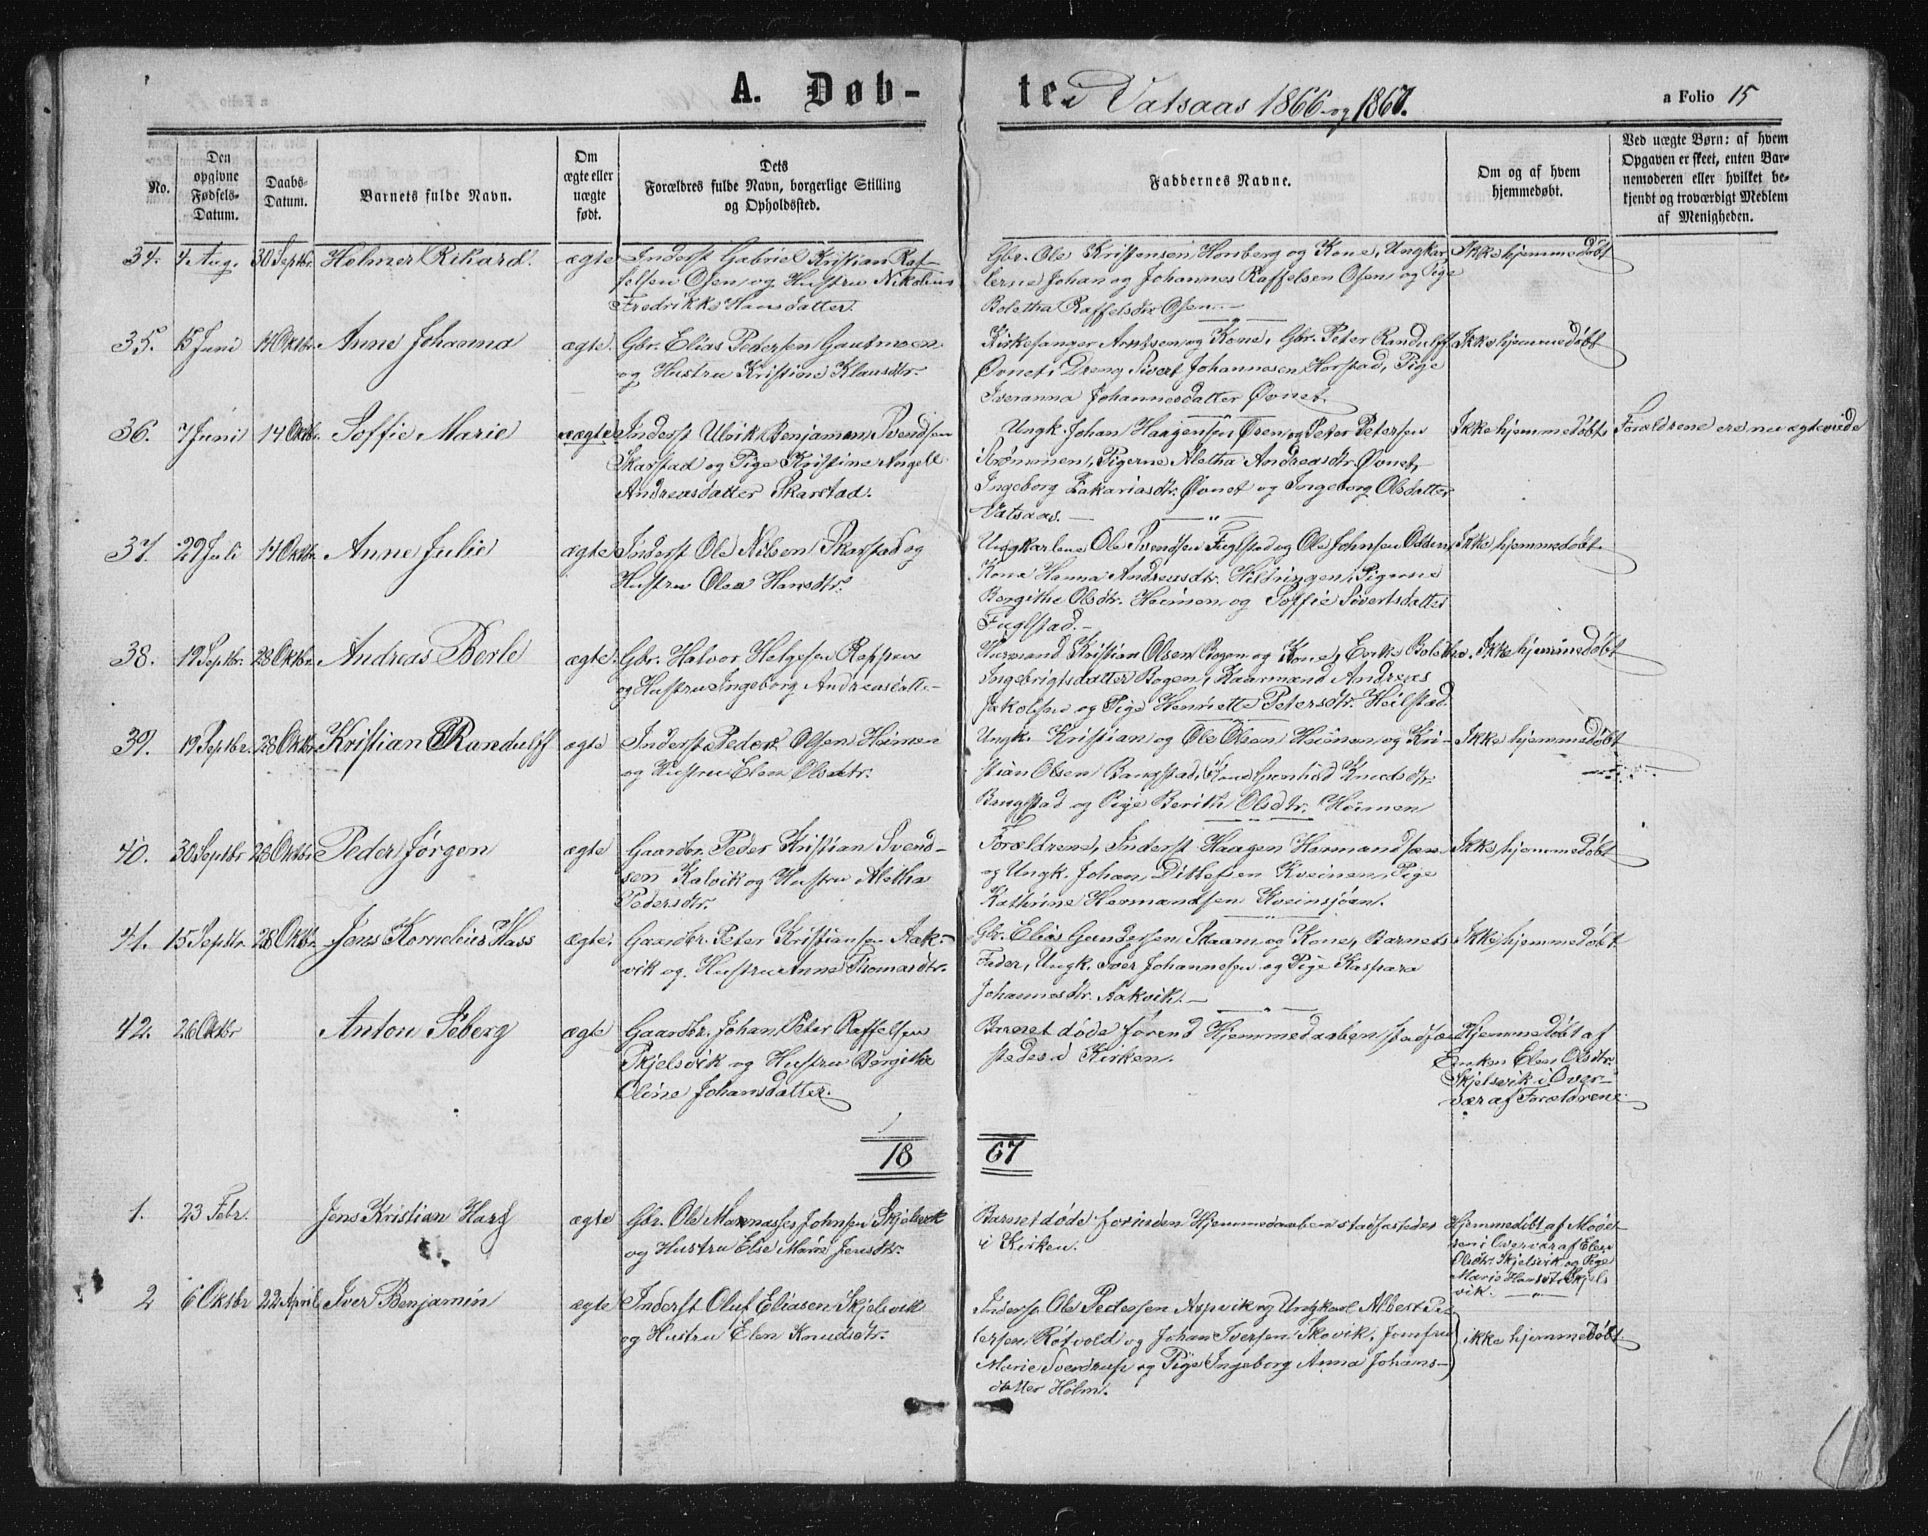 A. Døb-
te i Vatsaas 1866 og 1867.
a Folio 15
No.
Den opgivne Fødsels-Datum.
Daabs-Datum.
Barnets fulde Navn.
Om ægte eller uægte født.
Dets Forældres fulde Navn, borgerlige Stilling og Opholdssted.
Faddernes Navne.
Om og af hvem hjemmedøbt.
Ved uægte Børn: af hvem Opgaven er skeet, enten Barnemoderen eller hvilket bekjendt og troværdigt Medlem af Menigheden.
34. 4 Aug. 30 Septbr. Helmer Rikard. ægte
Inderst Gabriel Kristian Raf-
felsen Osen og Hustru Nikoline
Fredrikke Hansdatter.
Gbr. Ole Kristensen Honberg og Kone, Ungkar-
lene Johan og Johannes Raffelsen Osen og Pige
Boletha Raffelsdtr Osen.
Ikke hjemmedøbt
35. 15 Juni 14 Oktbr. Anne Johanna ægte.
Gbr. Elias Pedersen Gautmoen
og Hustru Kristine Klausdtr.
Kirkesanger Arntsen og Kone, Gbr. Peter Randulff
Øvnet, Dreng Sivert Johannesen Horstad, Pige
Iveranna Johannesdatter Øvnet.
Ikke hjemmedøbt
36. 7 Juni 14 Oktbr. Soffie Marie uægte
Inderst Ulrik Benjamen Svendsen
Skarstad og Pige Kristine Angell
Andreasdatter Skarstad.
Ungk. Johan Haagensen Øren og Peter Petersen
Strømmen, Pigerne Aletha Andreasdtr. Øvnet,
Ingeborg Zakariasdtr. Øvnet og Ingeborg Olsdatter
Vatsaas.
Ikke hjemmedøbt
Forældrene ere nu ægteviede
37. 29 Juli 14 Oktbr. Anne Julie ægte
Inderst Ole Nilsen Skarstad og
Hustru Olea Hansdtr.
Ungkarlene Ole Svendsen Fuglstad og Ole Johnsen Odden,
Kone Hanna Andreasdtr. Hildringen, Pigerne
Bergithe Olsdtr. Heimen og Soffie Sivertsdatter
Fuglstad.
Ikke hjemmedøbt.
38. 19 Septbr. 28 Oktbr. Andreas Berle ægte.
Gbr. Halvor Helgesen Reppen
og Hustru Ingeborg Andreasdatter
Husmand Kristian Olsen Bogen og Kone, Enke Boletha
Ingebrigtsdatter Bogen, Kaarmand Andreas
Jakobsen og Pige Henriette Petersdtr. Heilstad.
Ikke hjemmedøbt
39. 19 Septbr. 28 Oktbr. Kristian Randulff ægte
Inderst Peder Olsen Heimen
og Hustru Elen Olsdtr.
Ungk. Kristian og Ole Olsen Heimen og Kri-
stian Olsen Bangstad, Kone Gunhild Knudsdtr.
Bangstad og Pige Berith Olsdtr. Heimen
Ikke hjemmedøbt
40. 30 Septbr 28 Oktbr Peder Jørgen ægte
Gaardbr. Peder Kristian Svend-
sen Kalvik og Hustru Aletha
Pedersdtr.
Forældrene, Inderst Haagen Hermandsen
og Ungk. Johan Ditlefsen Kveinen, Pige
Kathrine Hermandsen Kveinsjøan.
Ikke hjemmedøbt
41. 15 Septbr. 28 Oktbr. Jens Kornelius Hass ægte.
Gaardbr. Peter Kristiansen Aak-
vik og Hustru Anne Thomasdtr.
Gbr. Elias Gundersen Skaam og Kone, Barnets
Fader, Ungk. Iver Johannesen og Pige Kaspara
Johannesdtr. Aakvik.
Ikke hjemmedøbt
42. 26 Oktbr Anton Seberg ægte
Gaardbr. Johan Peter Raffelsen
Skjelsvik og Hustru Bergithe
Oline Johansdatter.
Barnet døde førend Hjemmedaaben stadfæ-
stedes i Kirken.
Hjemmedøbt af
Enken Elen Olsdtr.
Skjelsvik i Over-
vær af Forældrene
1867
1. 23 Febr. Jens Kristian Harg ægte
Gbr. Ole Mannasses Johnsen Skjelsvik
og Hustru Else Marie Jensdtr.
Barnet døde forinden Hjemmedaaben stadfæstedes
i Kirken.
Hjemmedøbt af Mode-
ren i Overvær af Elen
Olsdtr. Skjelsvik og Pige
Marie Hansdtr Skjels
vik.
2 6 Oktbr 22 April Iver Benjamin ægte
Inderst Oluf Eliasen Skjelsvik
og Hustru Elen Knudsdtr.
Inderst Ole Pedersen Aspvik og Ungkarl Albert Pe-
tersen Rótvold og Johan Iversen Skovik, Jomfru
Marie Sverdrup og Pige Ingeborg Anna Johans-
datter Holm.
ikke hjemmedøbt